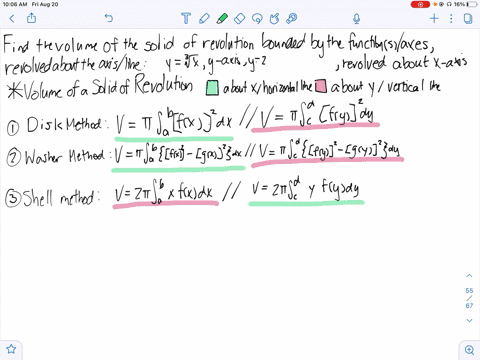 10:06 AM Fri Aug 20
16%
Find the volume of the solid of revolution bounded by the function(s)/axes,
revolved about the axis/line: y=∛x, y-axis, y=2 , revolved about x-axis
*Volume of a Solid of Revolution about x/horizontal line about y/vertical line
① Disk Method: V=π∫ₐᵇ[f(x)]²dx // V=π∫_c^d[f(y)]²dy
② Washer Method: V=π∫ₐᵇ{[f(x)]²-[g(x)]²}dx // V=π∫_c^d{[f(y)]²-[g(y)]²}dy
③ Shell method: V=2π∫ₐᵇ x f(x)dx // V=2π∫_c^d y f(y)dy
55
/
67